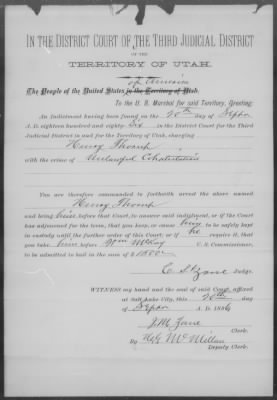 IN THE DISTRICT COURT OF THE THIRD JUDICIAL DISTRICT
OF THE
TERRITORY OF UTAH.
of America
The People of the United States in the Territory of Utah.
To the U. S. Marshal for said Territory, Greeting:
An Indictment having been found on the 20th day of
A. D. eighteen hundred and eighty-six in the District Court for the Third
Judicial District in and for the Territory of Utah, charging
Henry
with the crime of Unlawful Cohabitation
You are therefore commanded to forthwith arrest the above named
Henry
and bring him before that Court, to answer said indictment, or if the Court
has adjourned for the term, that you keep, or cause him to be safely kept
in custody until the further order of this Court, or if he require it, that
you take him before Wm McKay U. S. Commissioner,
to be admitted to bail in the sum of $1000
C. S. Zane Judge.
WITNESS my hand and the seal of said Court affixed
at Salt Lake City, this 20th day
of A. D. 1886
Zane
Clerk.
By McMillan
Deputy Clerk.